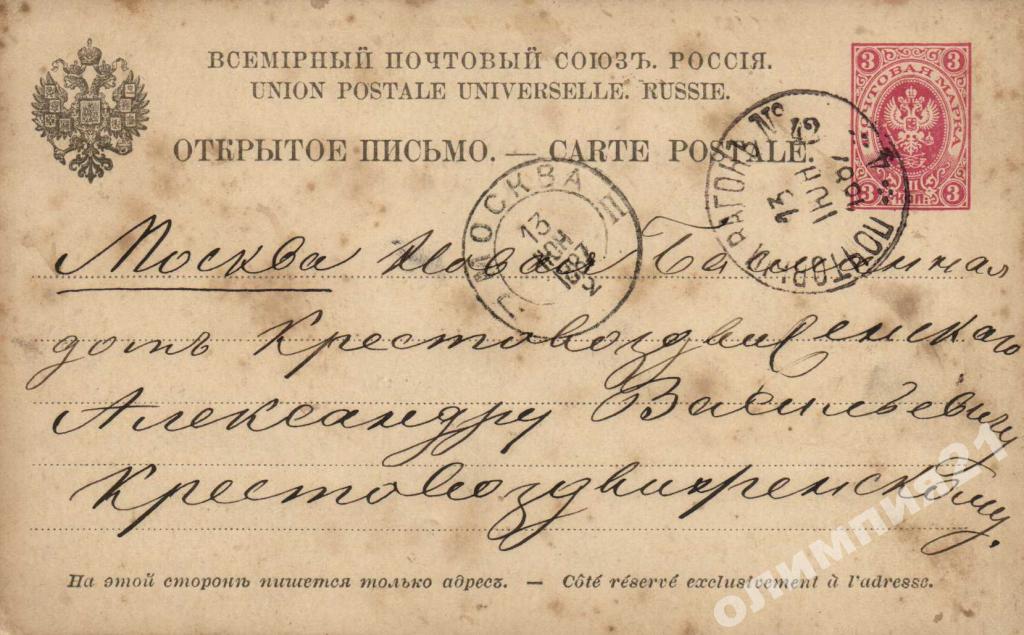 ВСЕМІРНЫЙ ПОЧТОВЫЙ СОЮЗЪ. РОССІЯ.
UNION POSTALE UNIVERSELLE. RUSSIE.
ОТКРЫТОЕ ПИСЬМО. — CARTE POSTALE.
3 3
ПОЧТОВАЯ МАРКА
3 КОП. 3
ПОЧТОВЫЙ ВАГОНЪ № 42
13
ІЮН.
1887
МОСКВА III
13
ІЮН
1887
Москва Новая Басманная
домъ Крестовоздвиженскаго
Александру Васильевичу
Крестовоздвиженскому.
На этой сторонѣ пишется только адресъ. — Côté réservé exclusivement à l'adresse.
олимпия21